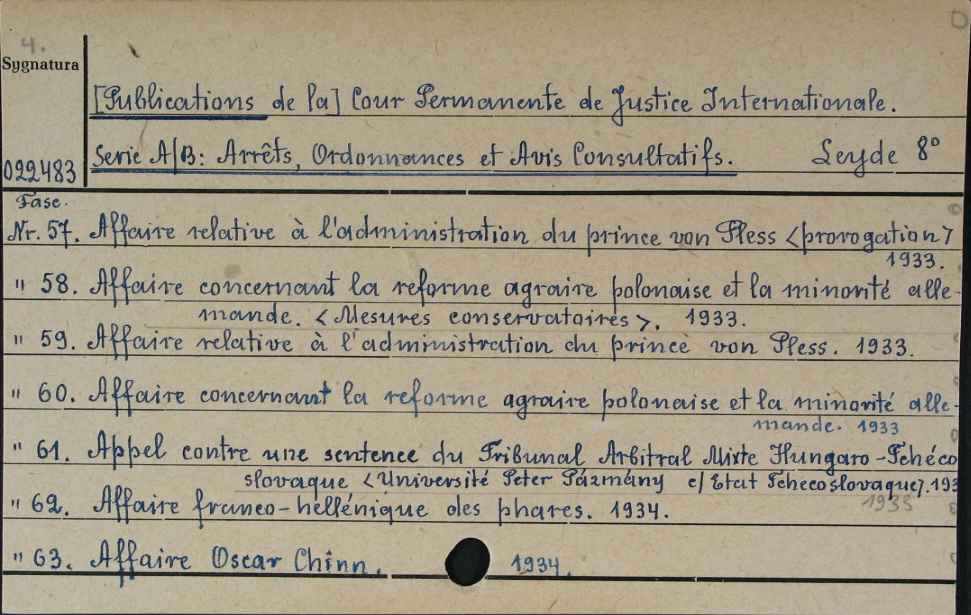 4.
Sygnatura
[Publications de la] Cour Permanente de Justice Internationale.
Serie A/B: Arrêts, Ordonnances et Avis Consultatifs. Leyde 8°
022483
Fasc.
Nr. 57. Affaire relative à l'administration du prince von Pless <prorogation>
1933.
" 58. Affaire concernant la reforme agraire polonaise et la minorité alle-
mande. <Mesures conservatoires>. 1933.
" 59. Affaire relative à l'administration du prince von Pless. 1933.
" 60. Affaire concernant la reforme agraire polonaise et la minorité alle-
mande. 1933
" 61. Appel contre une sentence du Tribunal Arbitral Mixte Hungaro-Tchéco
slovaque <Université Peter Pázmány c/ Etat Tchecoslovaque>. 193
1933
" 62. Affaire franco-hellénique des phares. 1934.
" 63. Affaire Oscar Chinn. 1934.